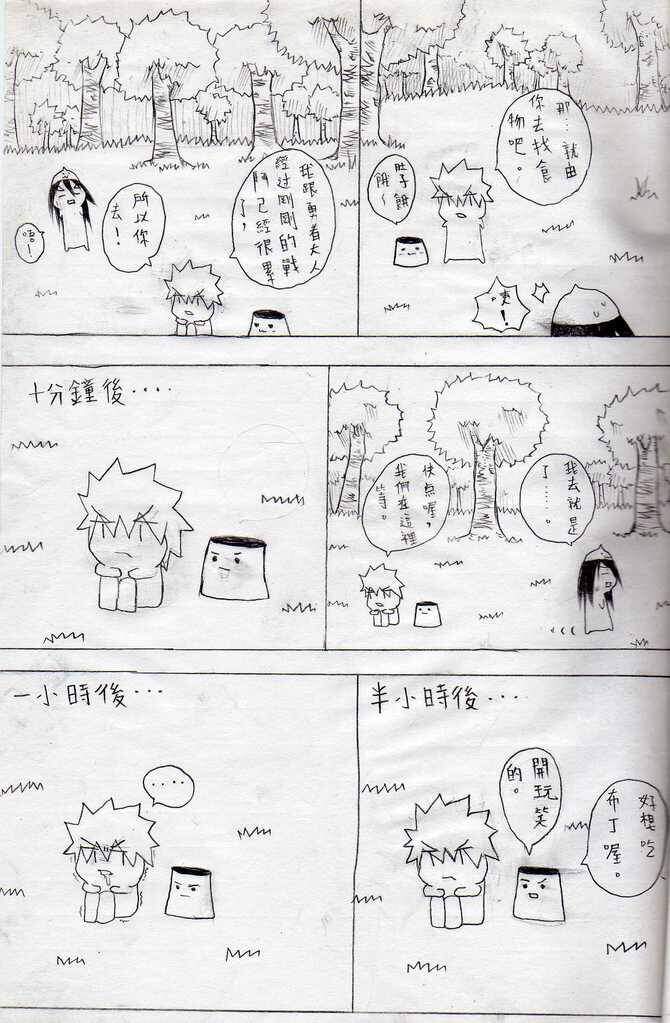 那…就由
你去找食
物吧。
肚子餓
餓～
咦！
我跟勇者大人
經过剛剛的戰
鬥已經很累
了，
所以你
去！
唔！
我去就是
了……。
快点喔，
我們在這裡
等。
十分鐘後····
好想吃
布丁喔。
半小時後····
開玩笑
的。
一小時後···
····